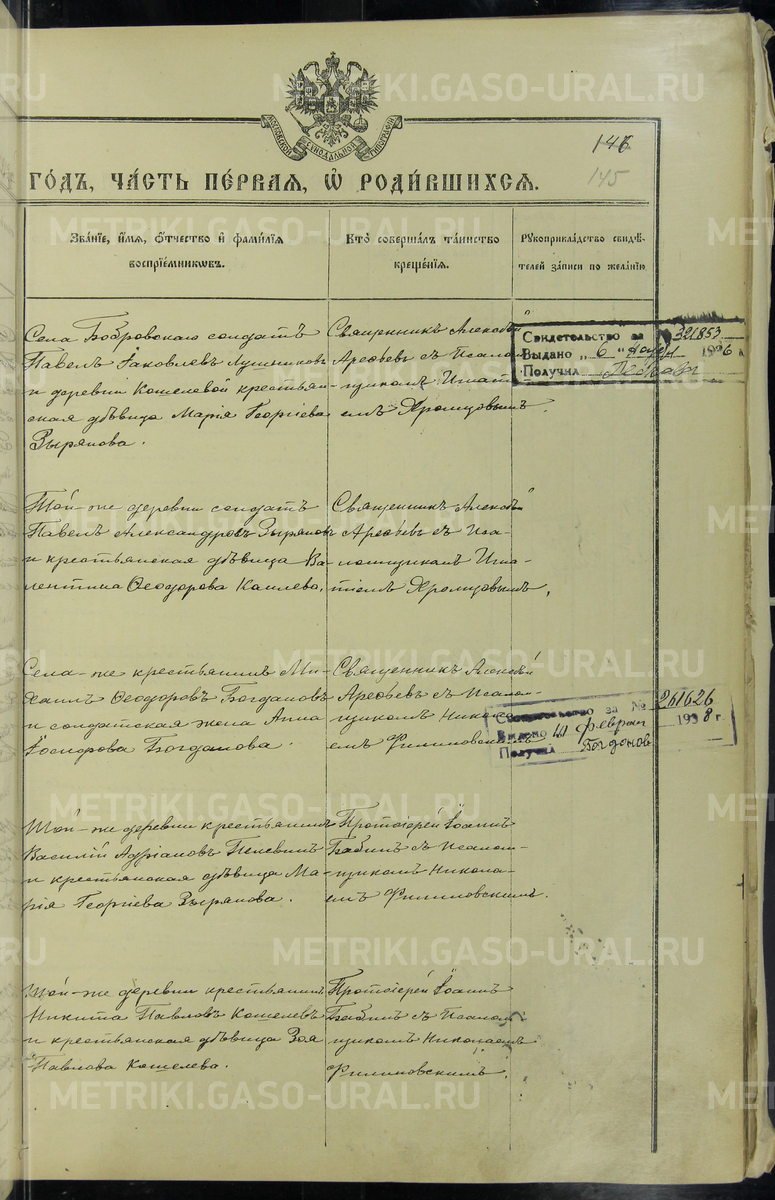 МОСКОВСКОЙ СѴНОДАЛЬНОЙ ТИПОГРАФІИ
146
145
ГО́ДЪ, ЧА́СТЬ ПЕ́РВАЯ, Ѽ РОДИ́ВШИХСѦ.
Зва́нїе, и́мѧ, ѻ́тчество и҆ фами́лїѧ воспрїе́мникѡвъ.
Кто̀ соверша́лъ та́инство креще́нїѧ.
Рꙋкоприкла́дство свидѣ́телей за́писи по жела́нїю
Села Бобровскаго солдатъ
Павелъ Іаковлевъ
и деревни Кошелевой крестьян-
ская дѣвица Марія Георгіева
Зырянова.
Священникъ Алексѣй
Арефьевъ съ псалом-
щикомъ Игнаті-
емъ
Свидетельство за № 321853
Выдано „6“ 1936 г.
Получил
Той-же деревни солдатъ
Павелъ Александровъ Зыряновъ
и крестьянская дѣвица Ва-
лентина Ѳеодорова Кошлева,
Священникъ Алексѣй
Арефьевъ съ пса-
ломщикомъ Игна-
тіемъ
Села-же крестьянинъ Ми-
хаилъ Ѳеодоровъ Богдановъ
и солдатская жена Анна
Іосифова Богданова.
Священникъ Алексѣй
Арефьевъ съ псалом-
щикомъ Никола-
емъ Филиповскимъ
Свидетельство за № 261626
Выдано 11 феврал 1938 г.
Получил Богданов
Той-же деревни крестьянинъ
Василій Адріановъ Пелевинъ
и крестьянская дѣвица Ма-
рія Георгіева Зырянова.
Протоіерей Іоаннъ
Бабинъ съ псалом-
щикомъ Никола-
емъ Филиповскимъ.
Той-же деревни крестьянинъ
Никита Павловъ Кошелевъ
и крестьянская дѣвица Зоя
Павлова Кошелева.
Протоіерей Іоаннъ
Бабинъ съ псалом-
щикомъ Николаемъ
Филиповскимъ.
METRIKI.GASO-URAL.RU